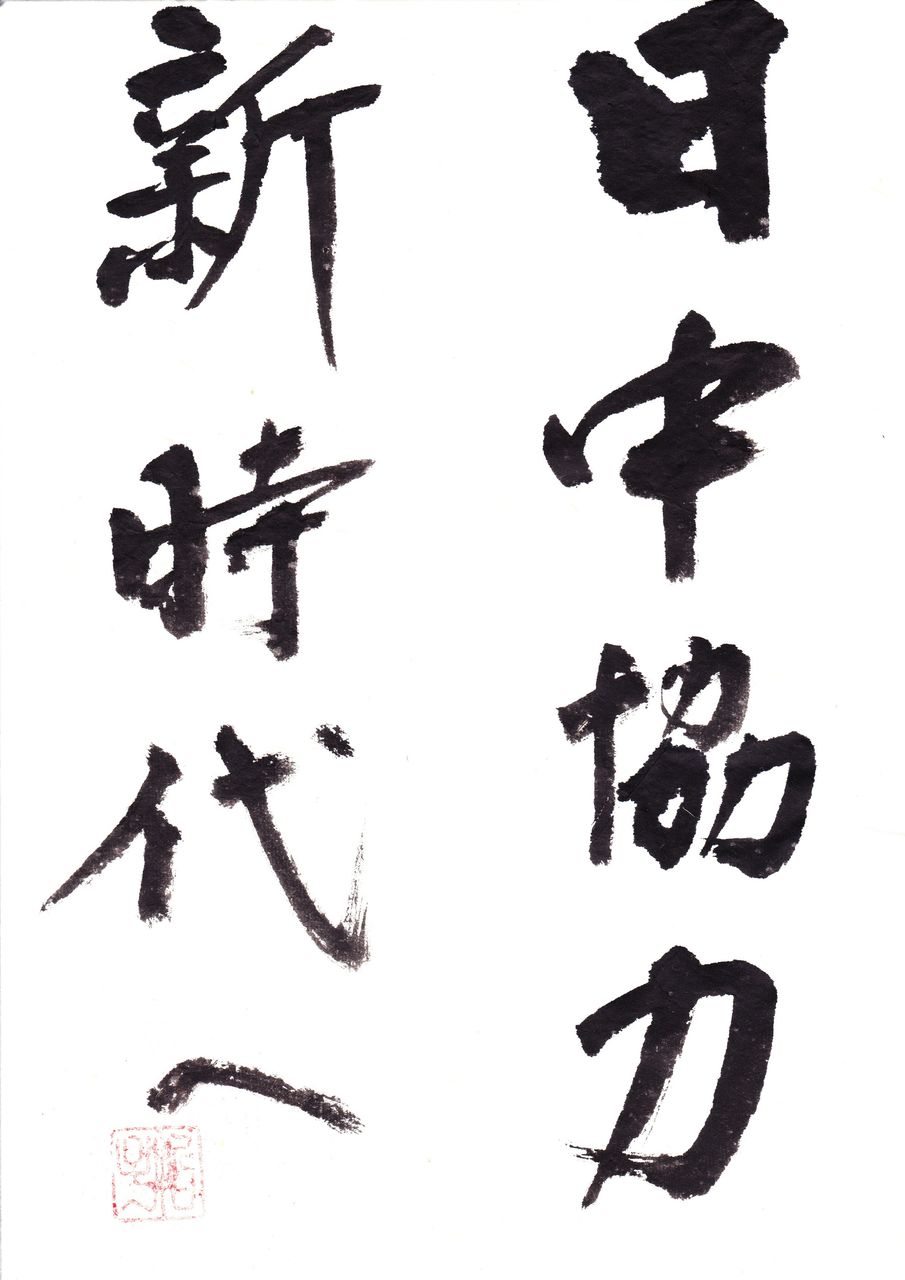 日中協力
新時代へ